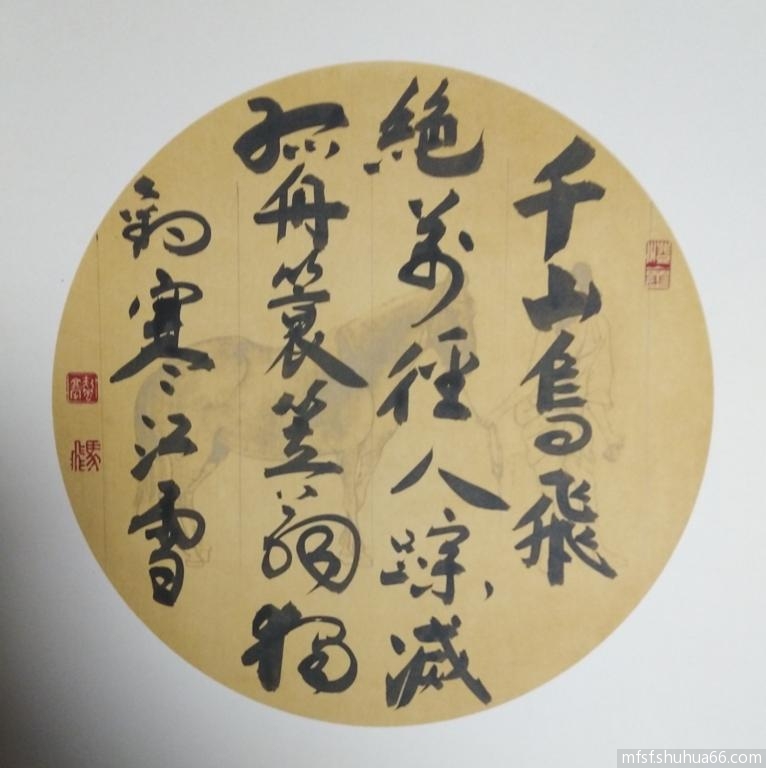 千山鳥飛
絶萬徑人踪滅
孤舟簑笠翁獨
釣寒江雪
mfsfshuhua66.com